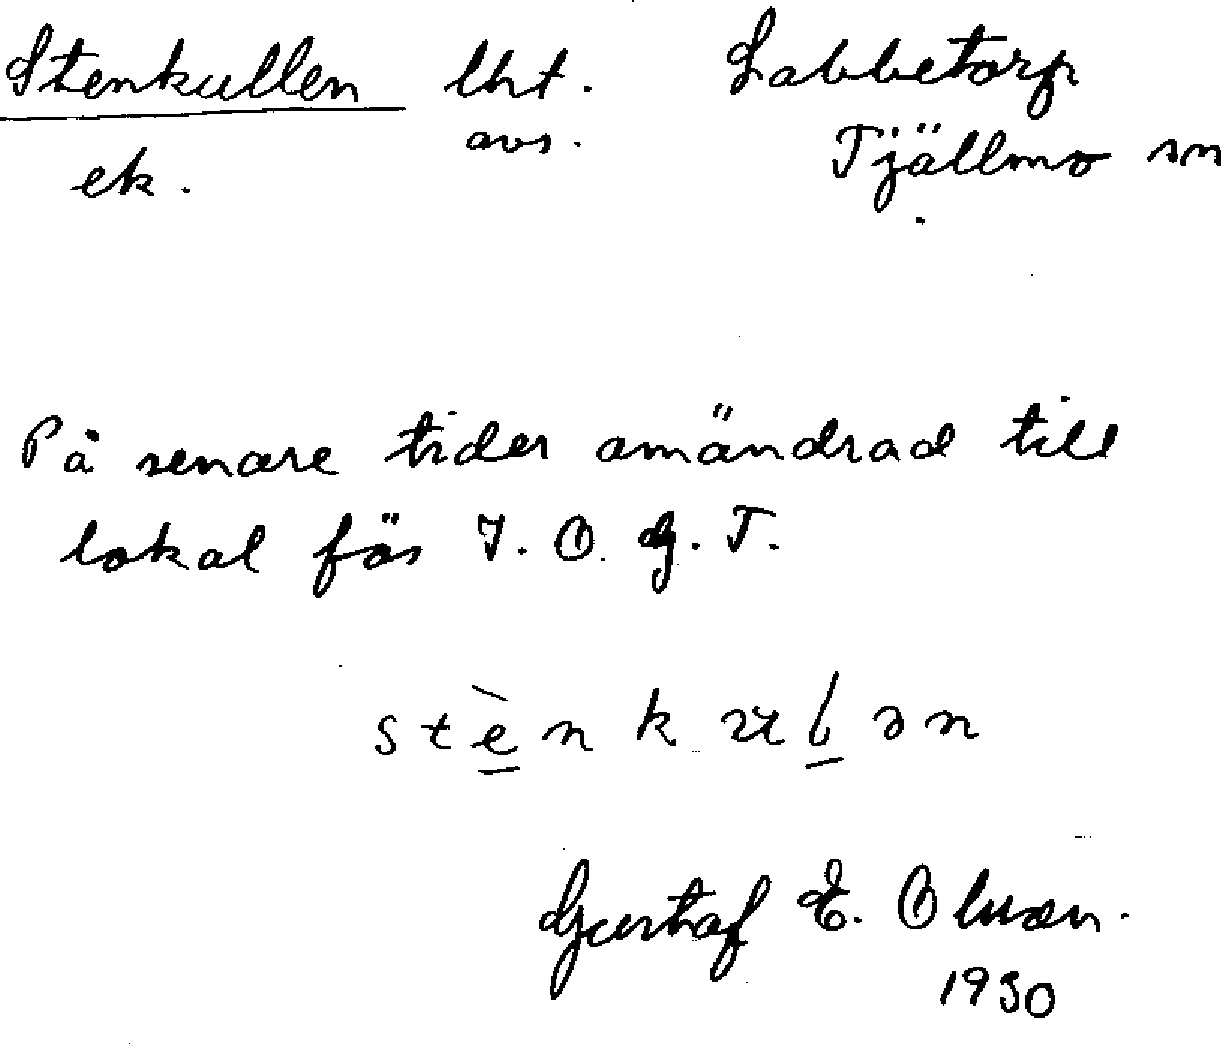 Stenkullen lht. Labbetorp
avs. Tjällmo sn
ek.
På senare tider omändrad till
lokal för I. O. G. T.
stènkulən
Gustaf E. Olsson.
1930